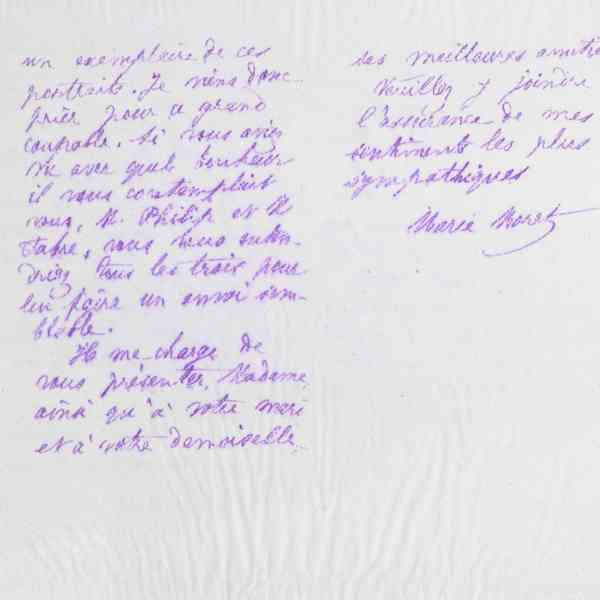 un exemplaire de ces
portraits. Je viens donc
prier pour ce grand
coupable. Si vous aviez
vu avec quel bonheur
il vous contemplait
vous, M. Philip et M.
vous vous enten-
driez tous les trois pour
lui faire un envoi sem-
blable.
Il me charge de
vous présenter, Madame,
ainsi qu'à votre mari
et à votre demoiselle
ses meilleures amitiés
Veuillez y joindre
l'assurance de mes
sentiments les plus
sympathiques
Marie Moret